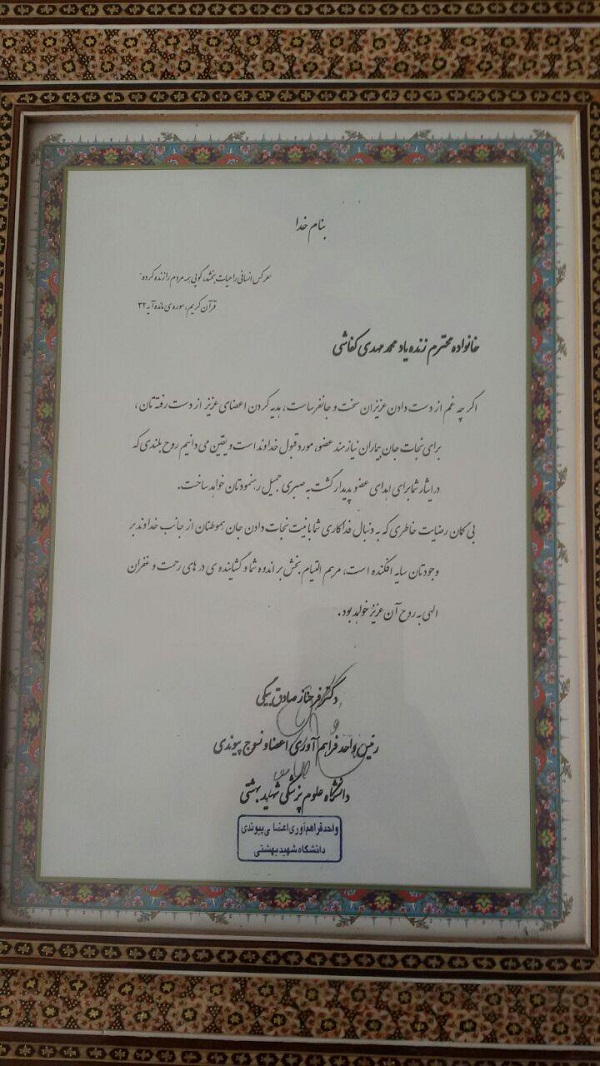 بنام خدا
هر کس انسانی را حیات بخشد، گویی همه مردم را زنده کرده:
قرآن کریم، سوره‌ی مائده آیه ۳۲
خانواده محترم زنده یاد محمد مهدی کفاشی
اگر چه غم از دست دادن عزیزان سخت و جانفرساست، هدیه کردن اعضای عزیز از دست رفته تان ،
برای نجات جان بیماران نیازمند عضو، مورد قبول خداوند است و یقین می دانیم روح بلندی که
در ایثار شما برای اهدای عضو پدیدار گشت به صبری جمیل رهنمودتان خواهد ساخت.
بی گمان رضایت خاطری که به دنبال فداکاری شما با نیت نجات دادن جان هموطنان از جانب خداوند بر
وجودتان سایه افکنده است، مرهم التیام بخش بر اندوه شما و گشاینده ی درهای رحمت و غفران
الهی به روح آن عزیز خواهد بود.
دکتر فرحناز صادق بیگی
رئیس واحد فراهم آوری اعضا و نسوج پیوندی
دانشگاه علوم پزشکی شهید بهشتی
واحد فراهم آوری اعضا ی پیوندی
دانشگاه شهید بهشتی